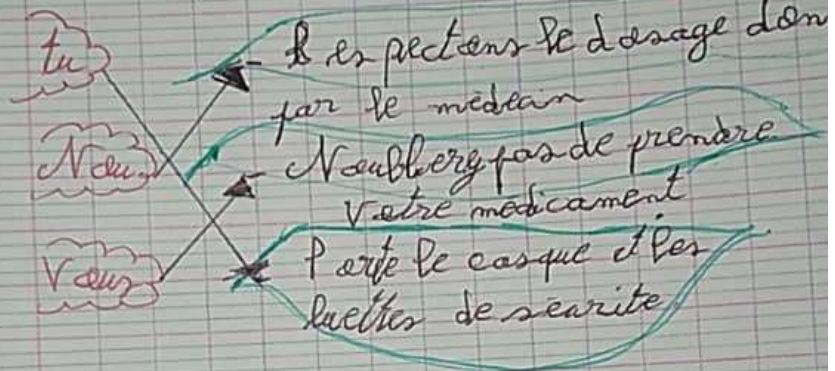 tu
- Respectons le dosage don
par le médecin
Nous
- N'oubliez pas de prendre
votre medicament
Vous
Porte le casque et les
luettes de séurite